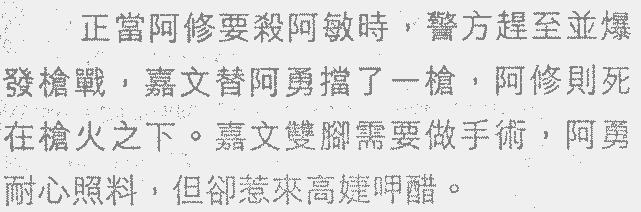 正當阿修要殺阿敏時，警方趕至並爆
發槍戰，嘉文替阿勇擋了一槍，阿修則死
在槍火之下。嘉文雙腳需要做手術，阿勇
耐心照料，但卻惹來高婕呷醋。